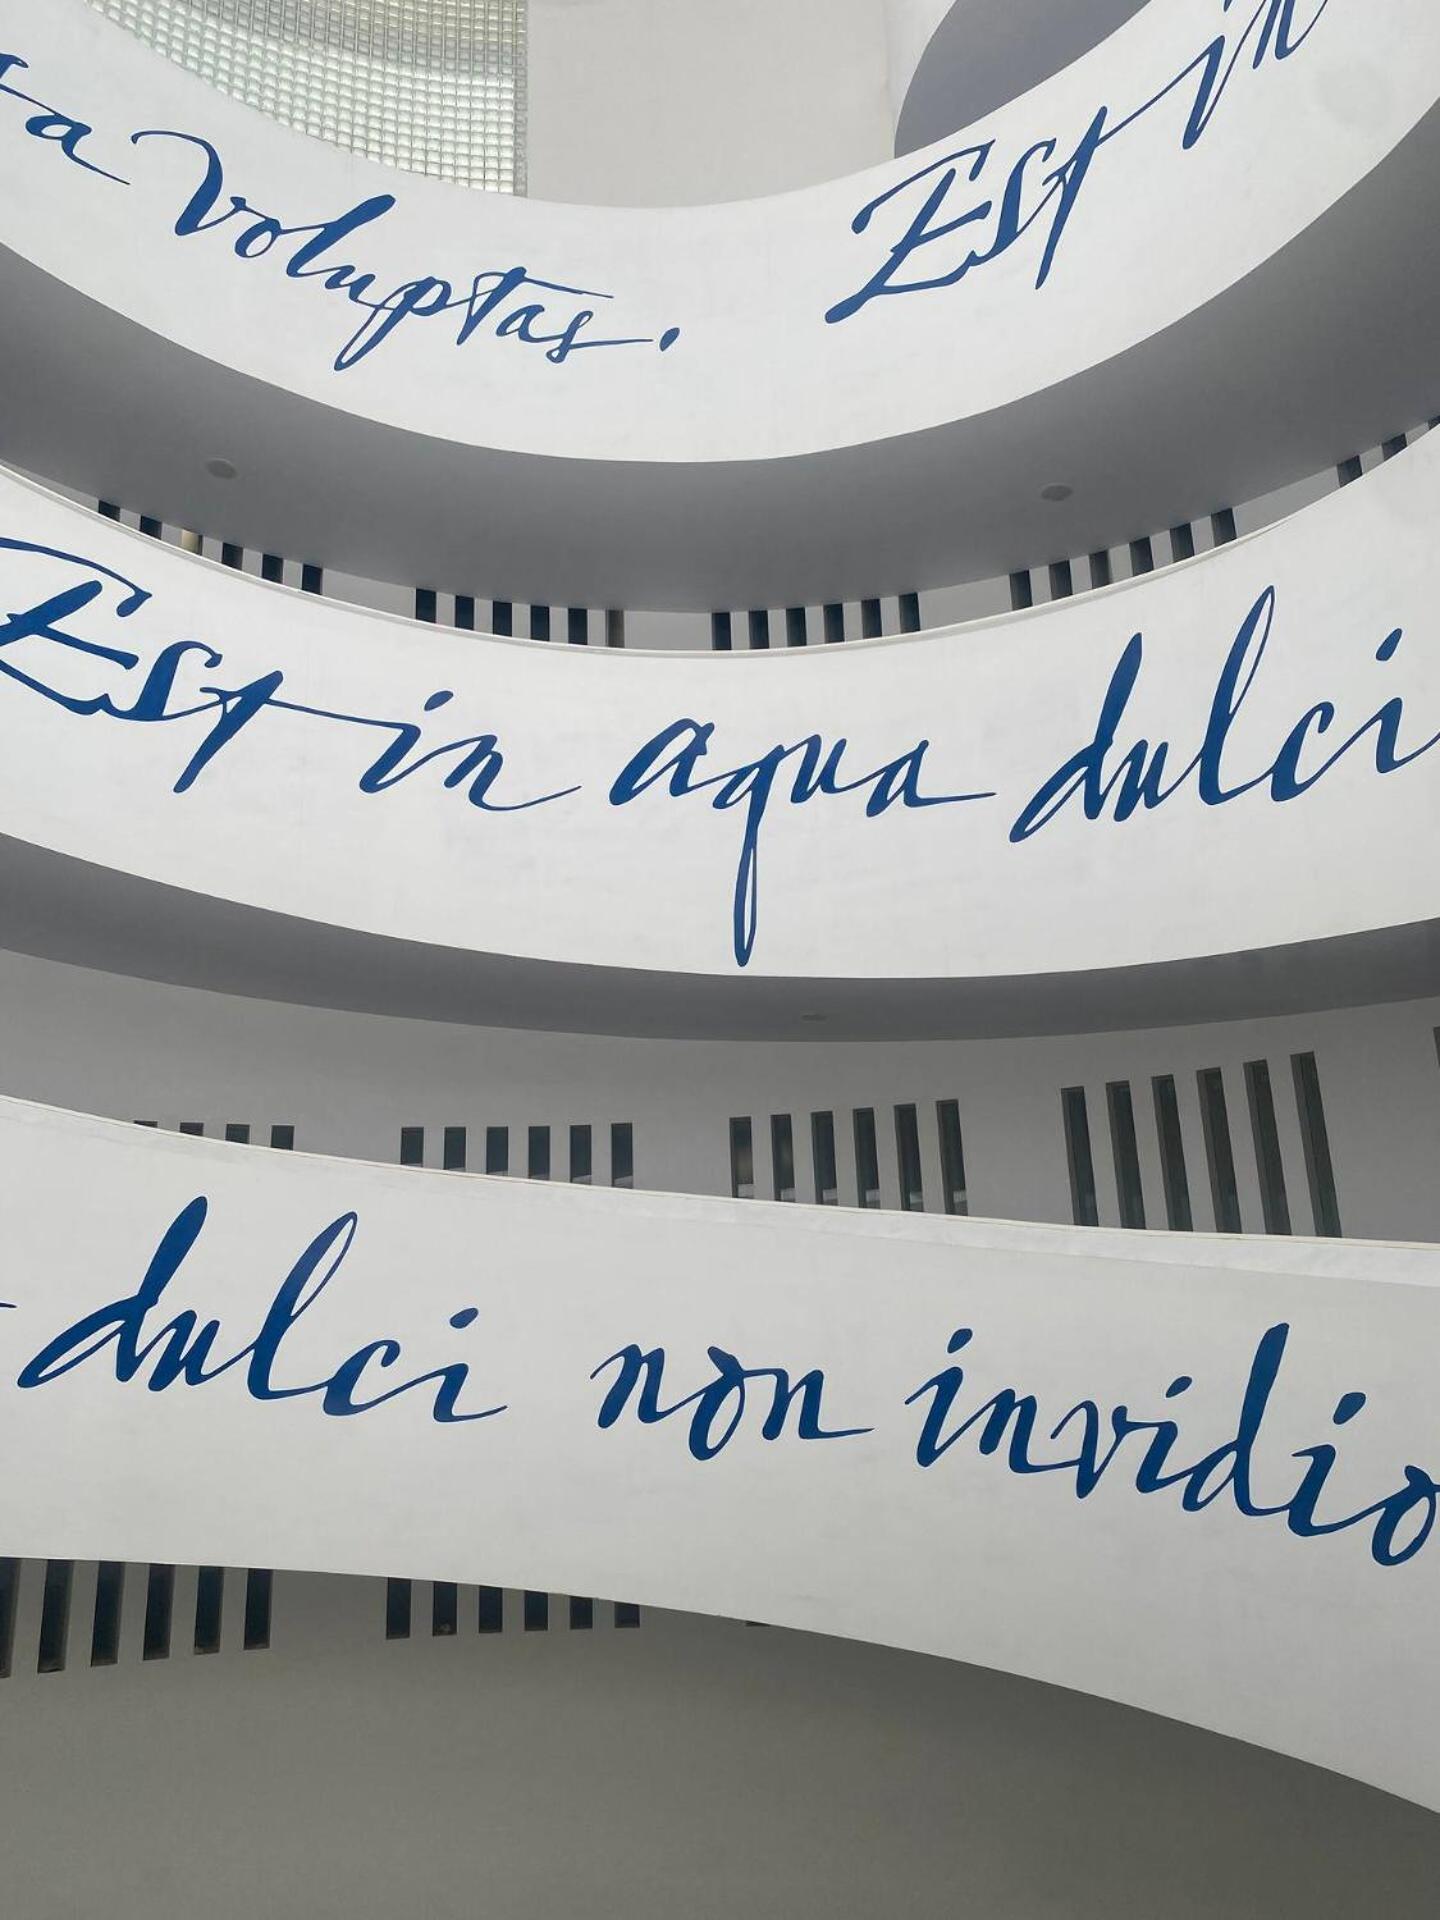 ta voluptas. Est in
Est in aqua dulci
dulci non invidio